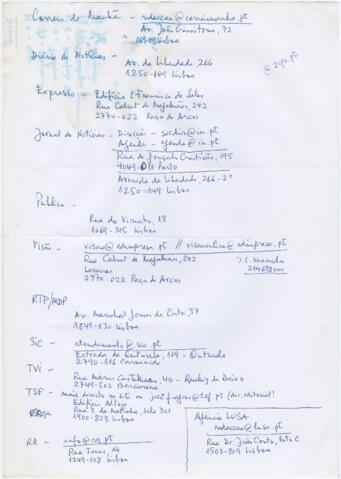 Correio da Manhã - redaccao@correiomanha.pt
Av. João Crisóstomo, 72
1069-043 Lisboa
Diário de Notícias - Av. da Liberdade, 266
1250-149 Lisboa
Expresso - Edifício S. Francisco de Sales
Rua Calvet de Magalhães, 242
2770-022 Paço de Arcos
Jornal de Notícias - Direcção - secdir@jn.pt
Agenda - agenda@jn.pt
Rua de Gonçalo Cristóvão, 195
4049-011 Porto
Avenida da Liberdade, 266-2º
1250-149 Lisboa
Público -
Rua do Viriato, 13
1069-315 Lisboa
Visão - visao@edimpresa.pt // visaonline@edimpresa.pt
Rua Calvet de Magalhães, 242
Laveiras
2770-022 Paço de Arcos
214698000
RTP/RDP
Av. Marechal Gomes da Costa, 37
1849-030 Lisboa
SIC - atendimento@sic.pt
Estrada da Outurela, 119 - Outurela
2790-116 Carnaxide
TVI - Rua Mário Castelhano, 40 - Queluz de Baixo
2749-502 Barcarena
TSF - mail directo no site ou
(dir. editorial)
Edifício Altejo
Rua 3 da Matinha, Sala 301
1900-823 Lisboa
RR - info@rr.pt
Rua Ivens, 14
1249-108 Lisboa
Agência LUSA
redaccao@lusa.pt
Rua Dr. João Couto, Lote C
1503-809 Lisboa